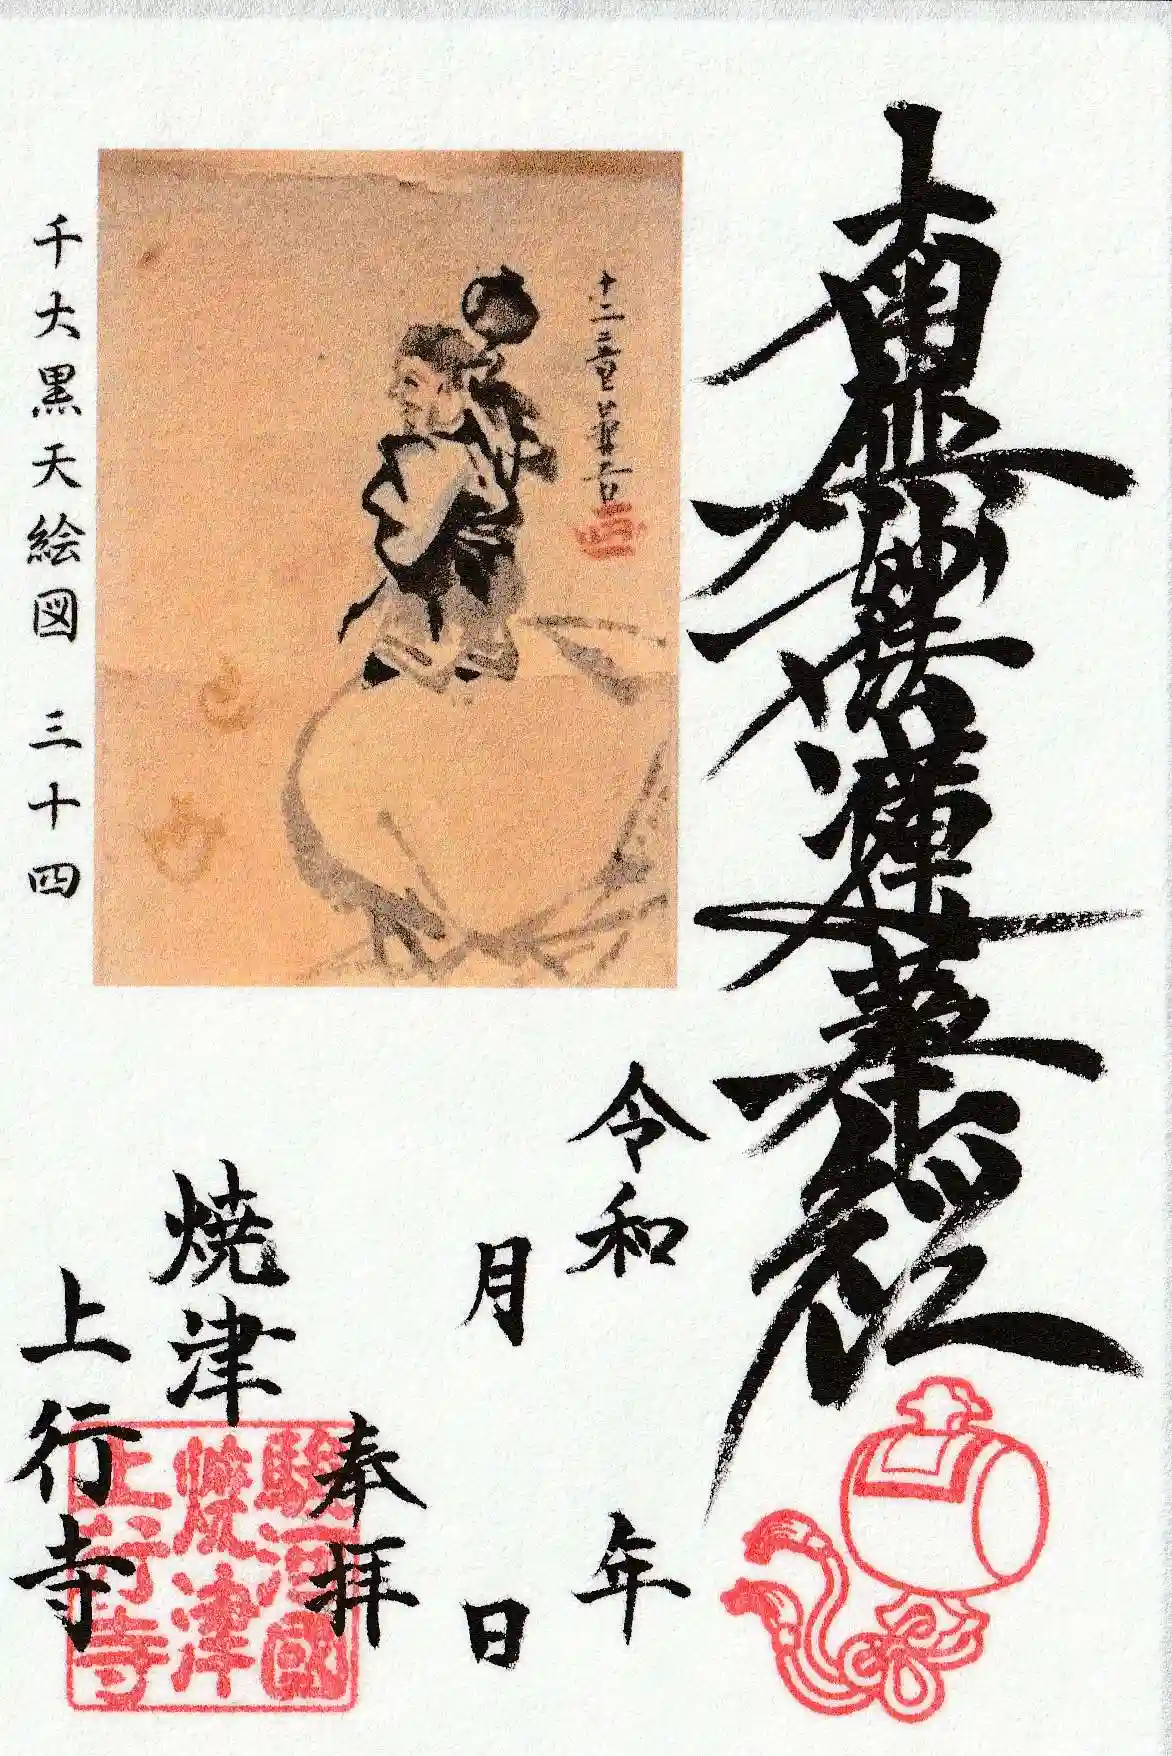 南無妙法蓮華経
千大黒天絵図 三十四
令和 年
月 日
奉拝
焼津
上行寺
駿河國
燒津
上行寺